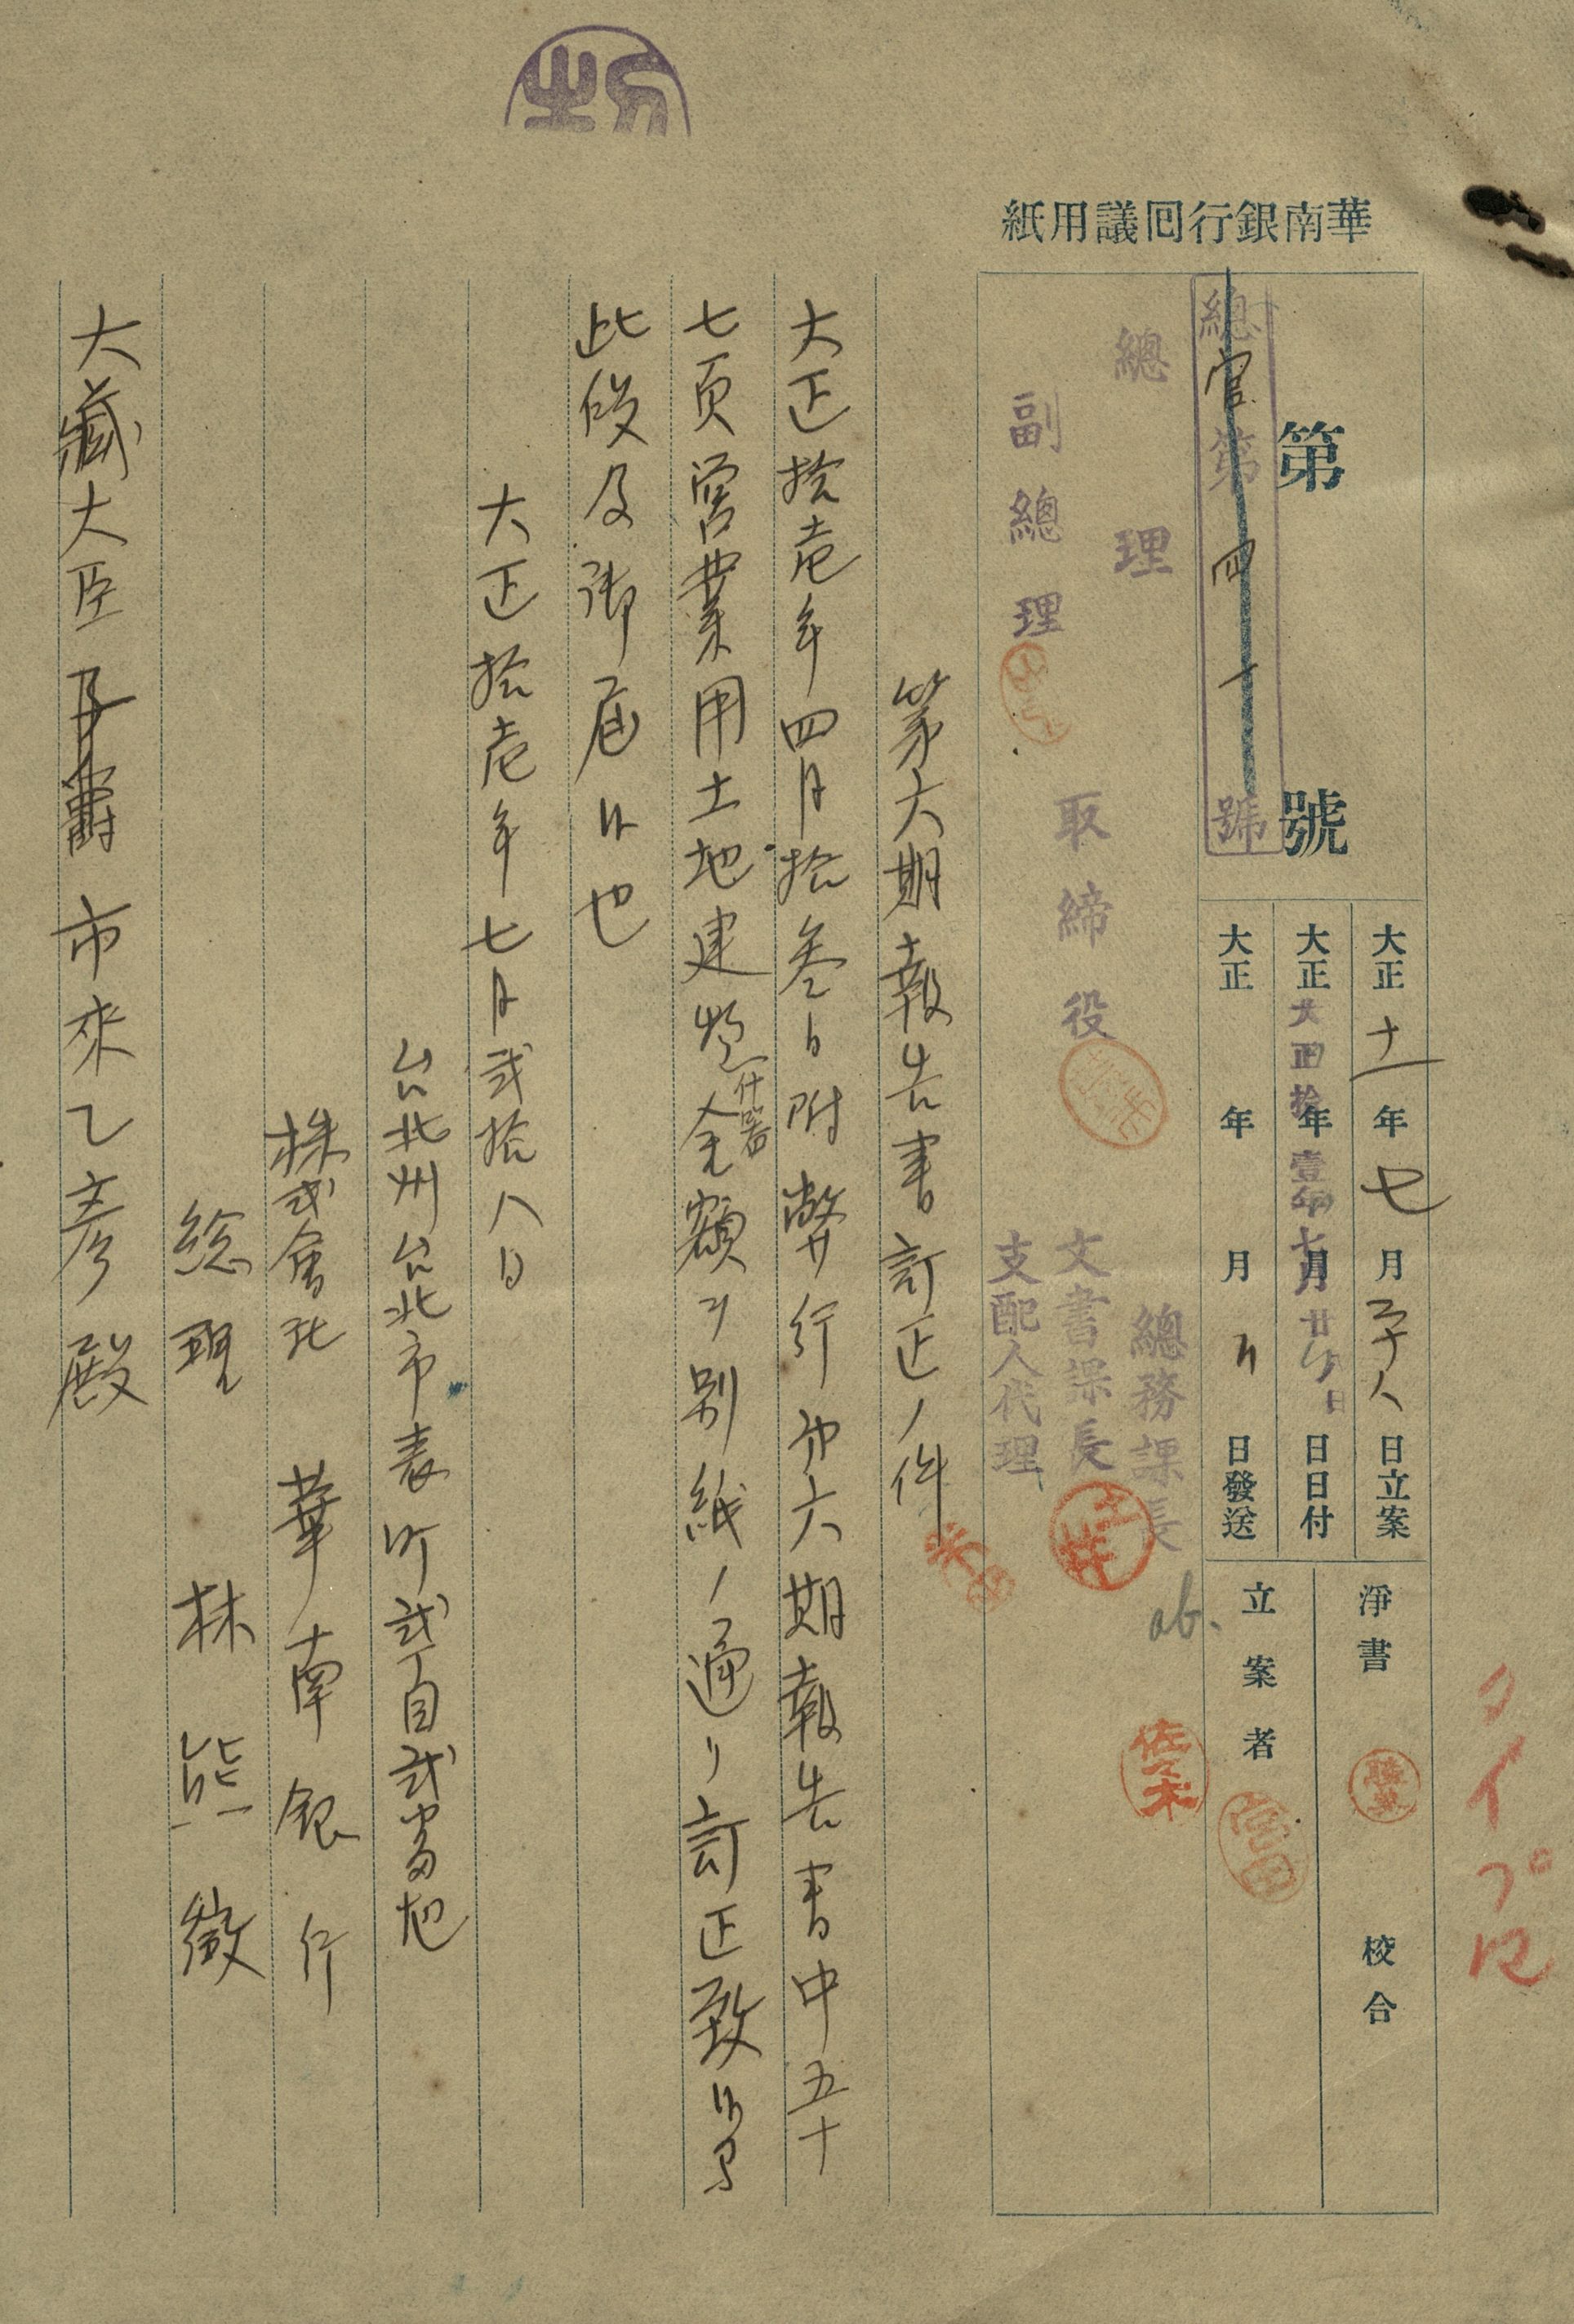 華南銀行囘議用紙
第 號
總官第四一號
大正十一年七月二十八日立案
大正 年 月 日日付
大正拾壹年七月廿八日
大正 年 月 日發送
淨書
校合
立案者
佐々木
タイプ
總理
副總理
取締役
總務課長
文書課長
支配人代理
第六期報告書訂正ノ件
大正拾壱年四月拾参日附弊行第六期報告書中五十
七頁営業用土地建物什器金額ヲ別紙ノ通リ訂正致候間
此段及御届候也
大正拾壱年七月弐拾八日
台北州台北市表町弐丁目弐番地
株式會社 華南銀行
総理 林熊徴
大藏大臣子爵市來乙彦殿